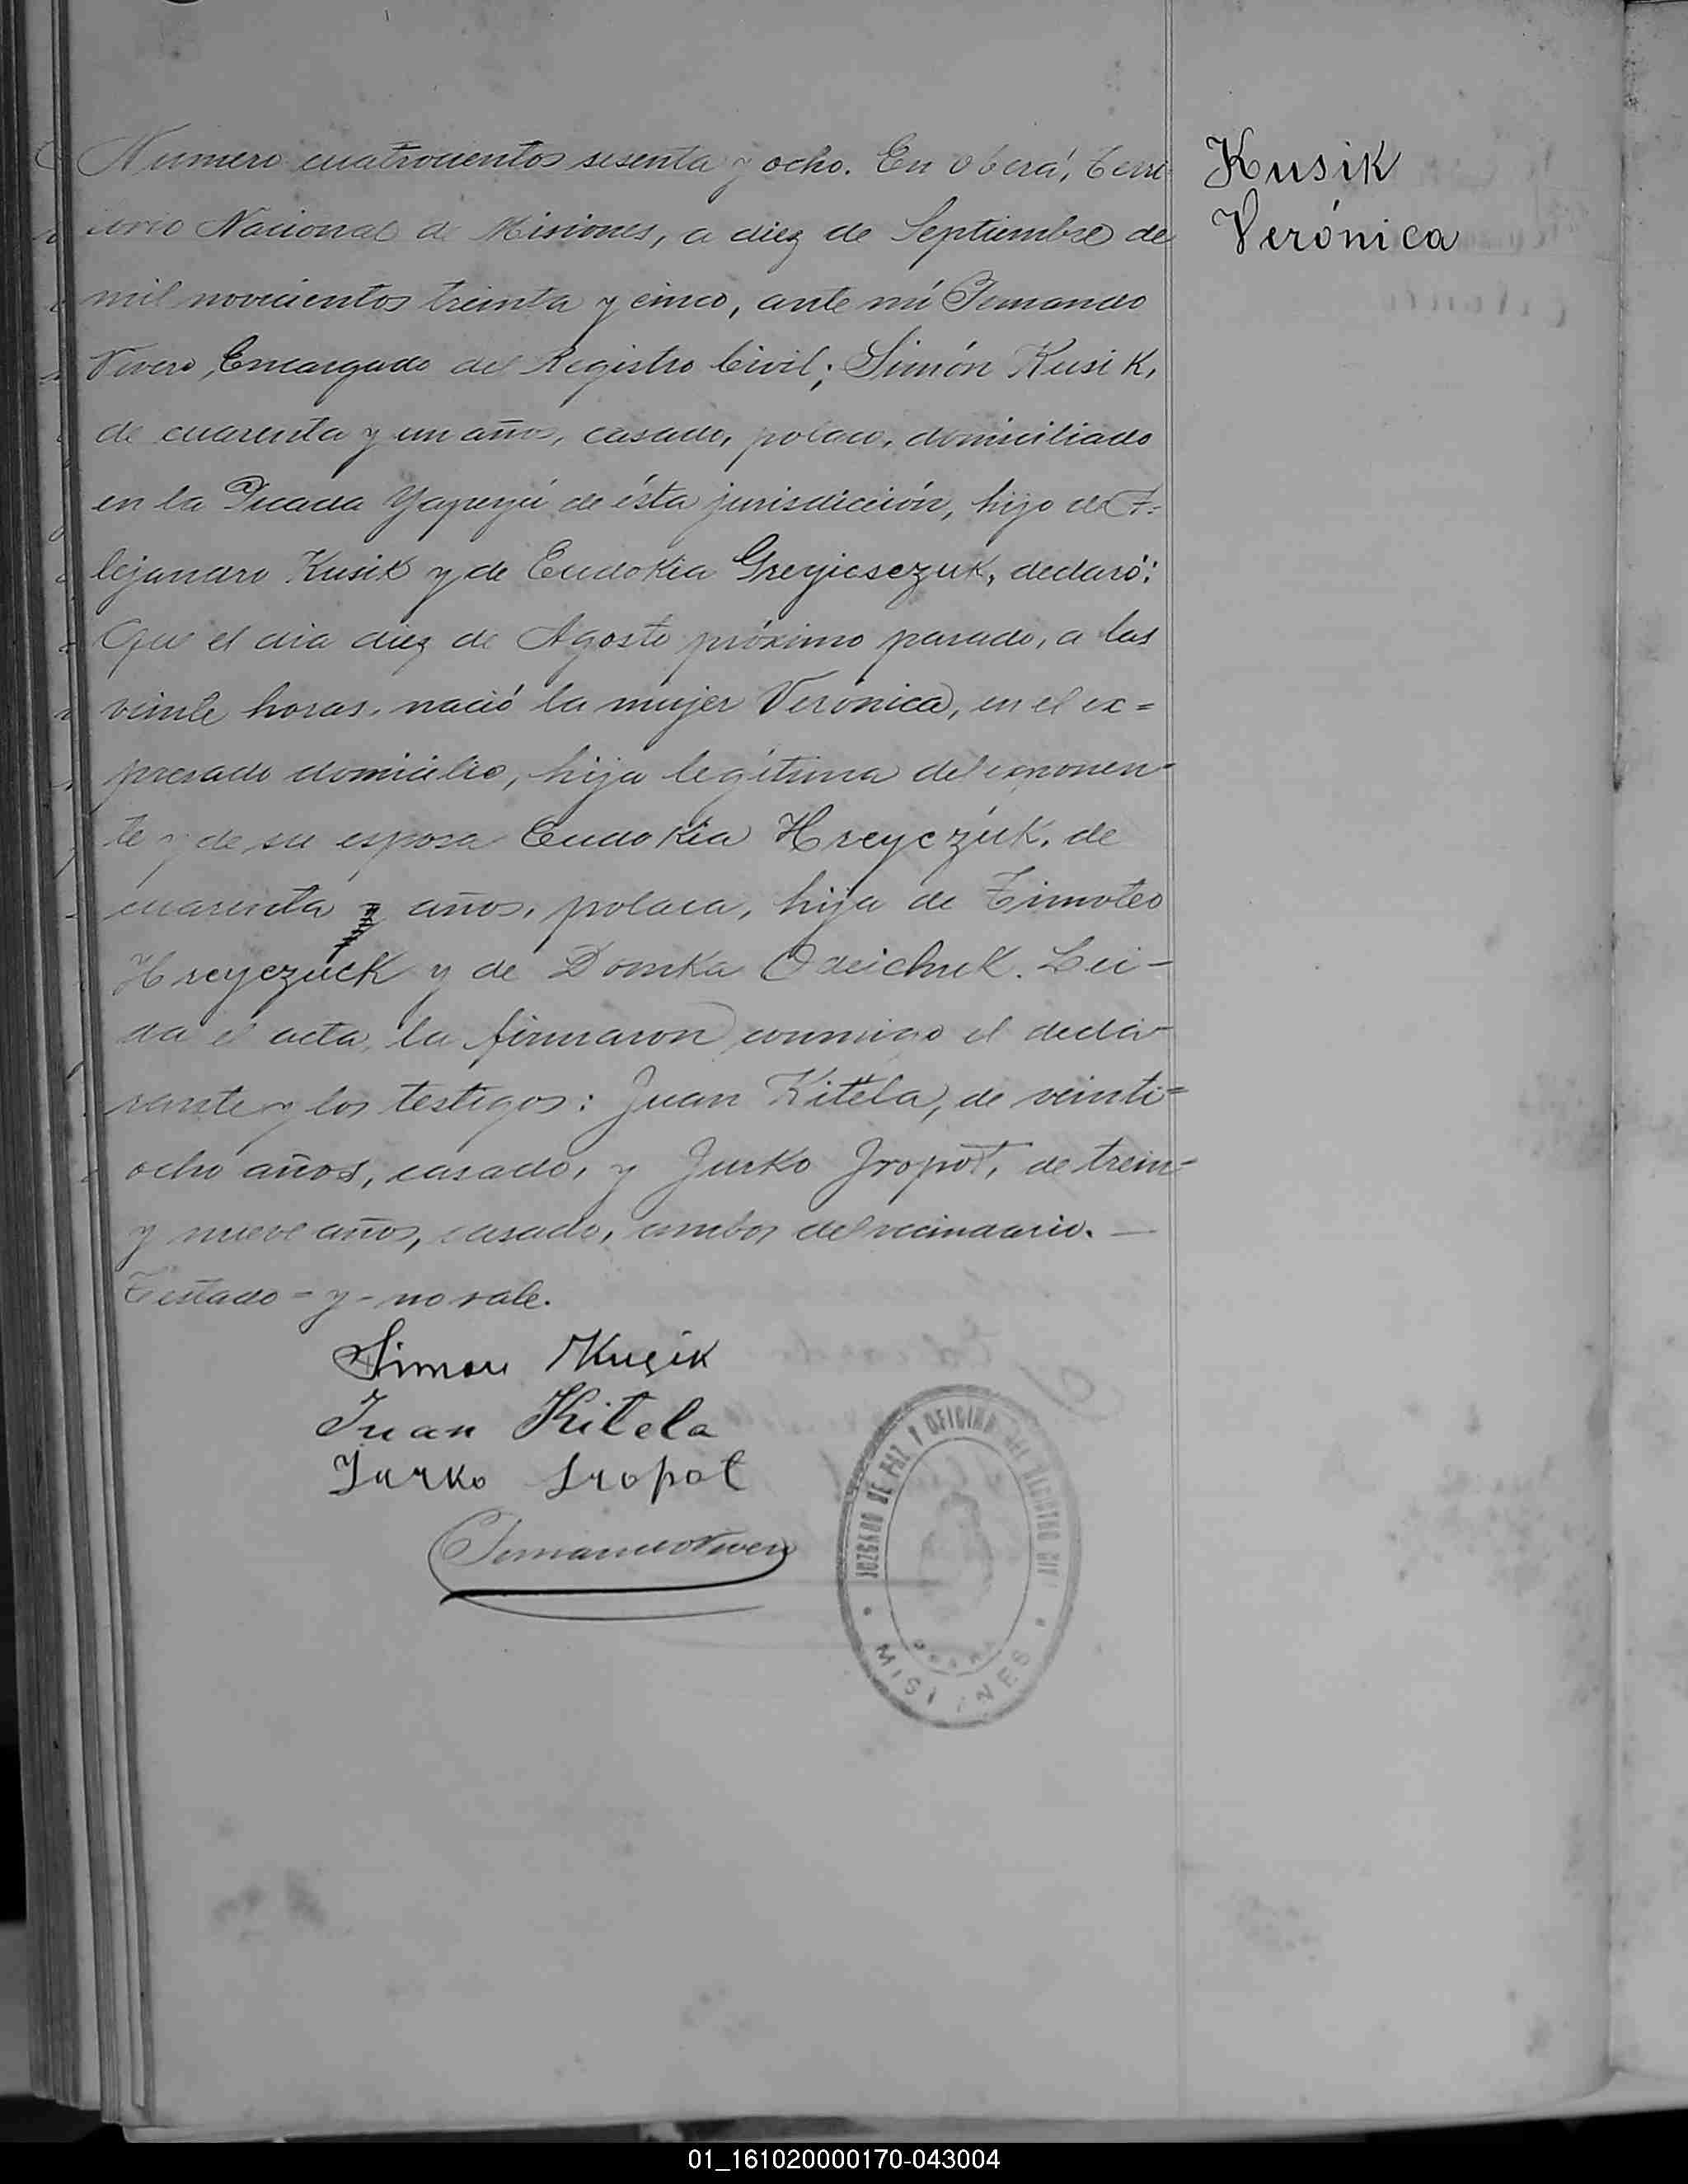 Kusik
Verónica
Numero cuatrocientos sesenta y ocho. En Oberá, Terri
torio Nacional de Misiones, a diez de Septiembre de
mil novecientos treinta y cinco, ante mí Fernando
Vivero, Encargado del Registro Civil; Simón Kusik,
de cuarenta y un años, casado, polaco, domiciliado
en la Picada Yapeyú de ésta jurisdicción, hijo de A-
lejandro Kusik y de Eudokia Greyiesczuk, declaró:
Que el día diez de Agosto próximo pasado, a las
veinte horas, nació la mujer Verónica, en el ex=
presado domicilio, hija legítima del exponen-
te y de su esposa Eudokia Hreyczuk, de
cuarenta y años, polaca, hija de Timoteo
Hreyczuck y de Domka Odeichuk. Leí-
da el acta, la firmaron conmigo el decla-
rante y los testigos: Juan Kitela, de veinti=
ocho años, casado, y Jurko Jropot, de trein-
y nueve años, casado, ambos del vecindario. —
Testado = y - no vale.
Simon Kusik
Juan Kitela
Jurko Jropot
Fernando Vivero
JUZGADO DE PAZ Y OFICINA DEL REGISTRO CIVIL
MISIONES
01_161020000170-043004